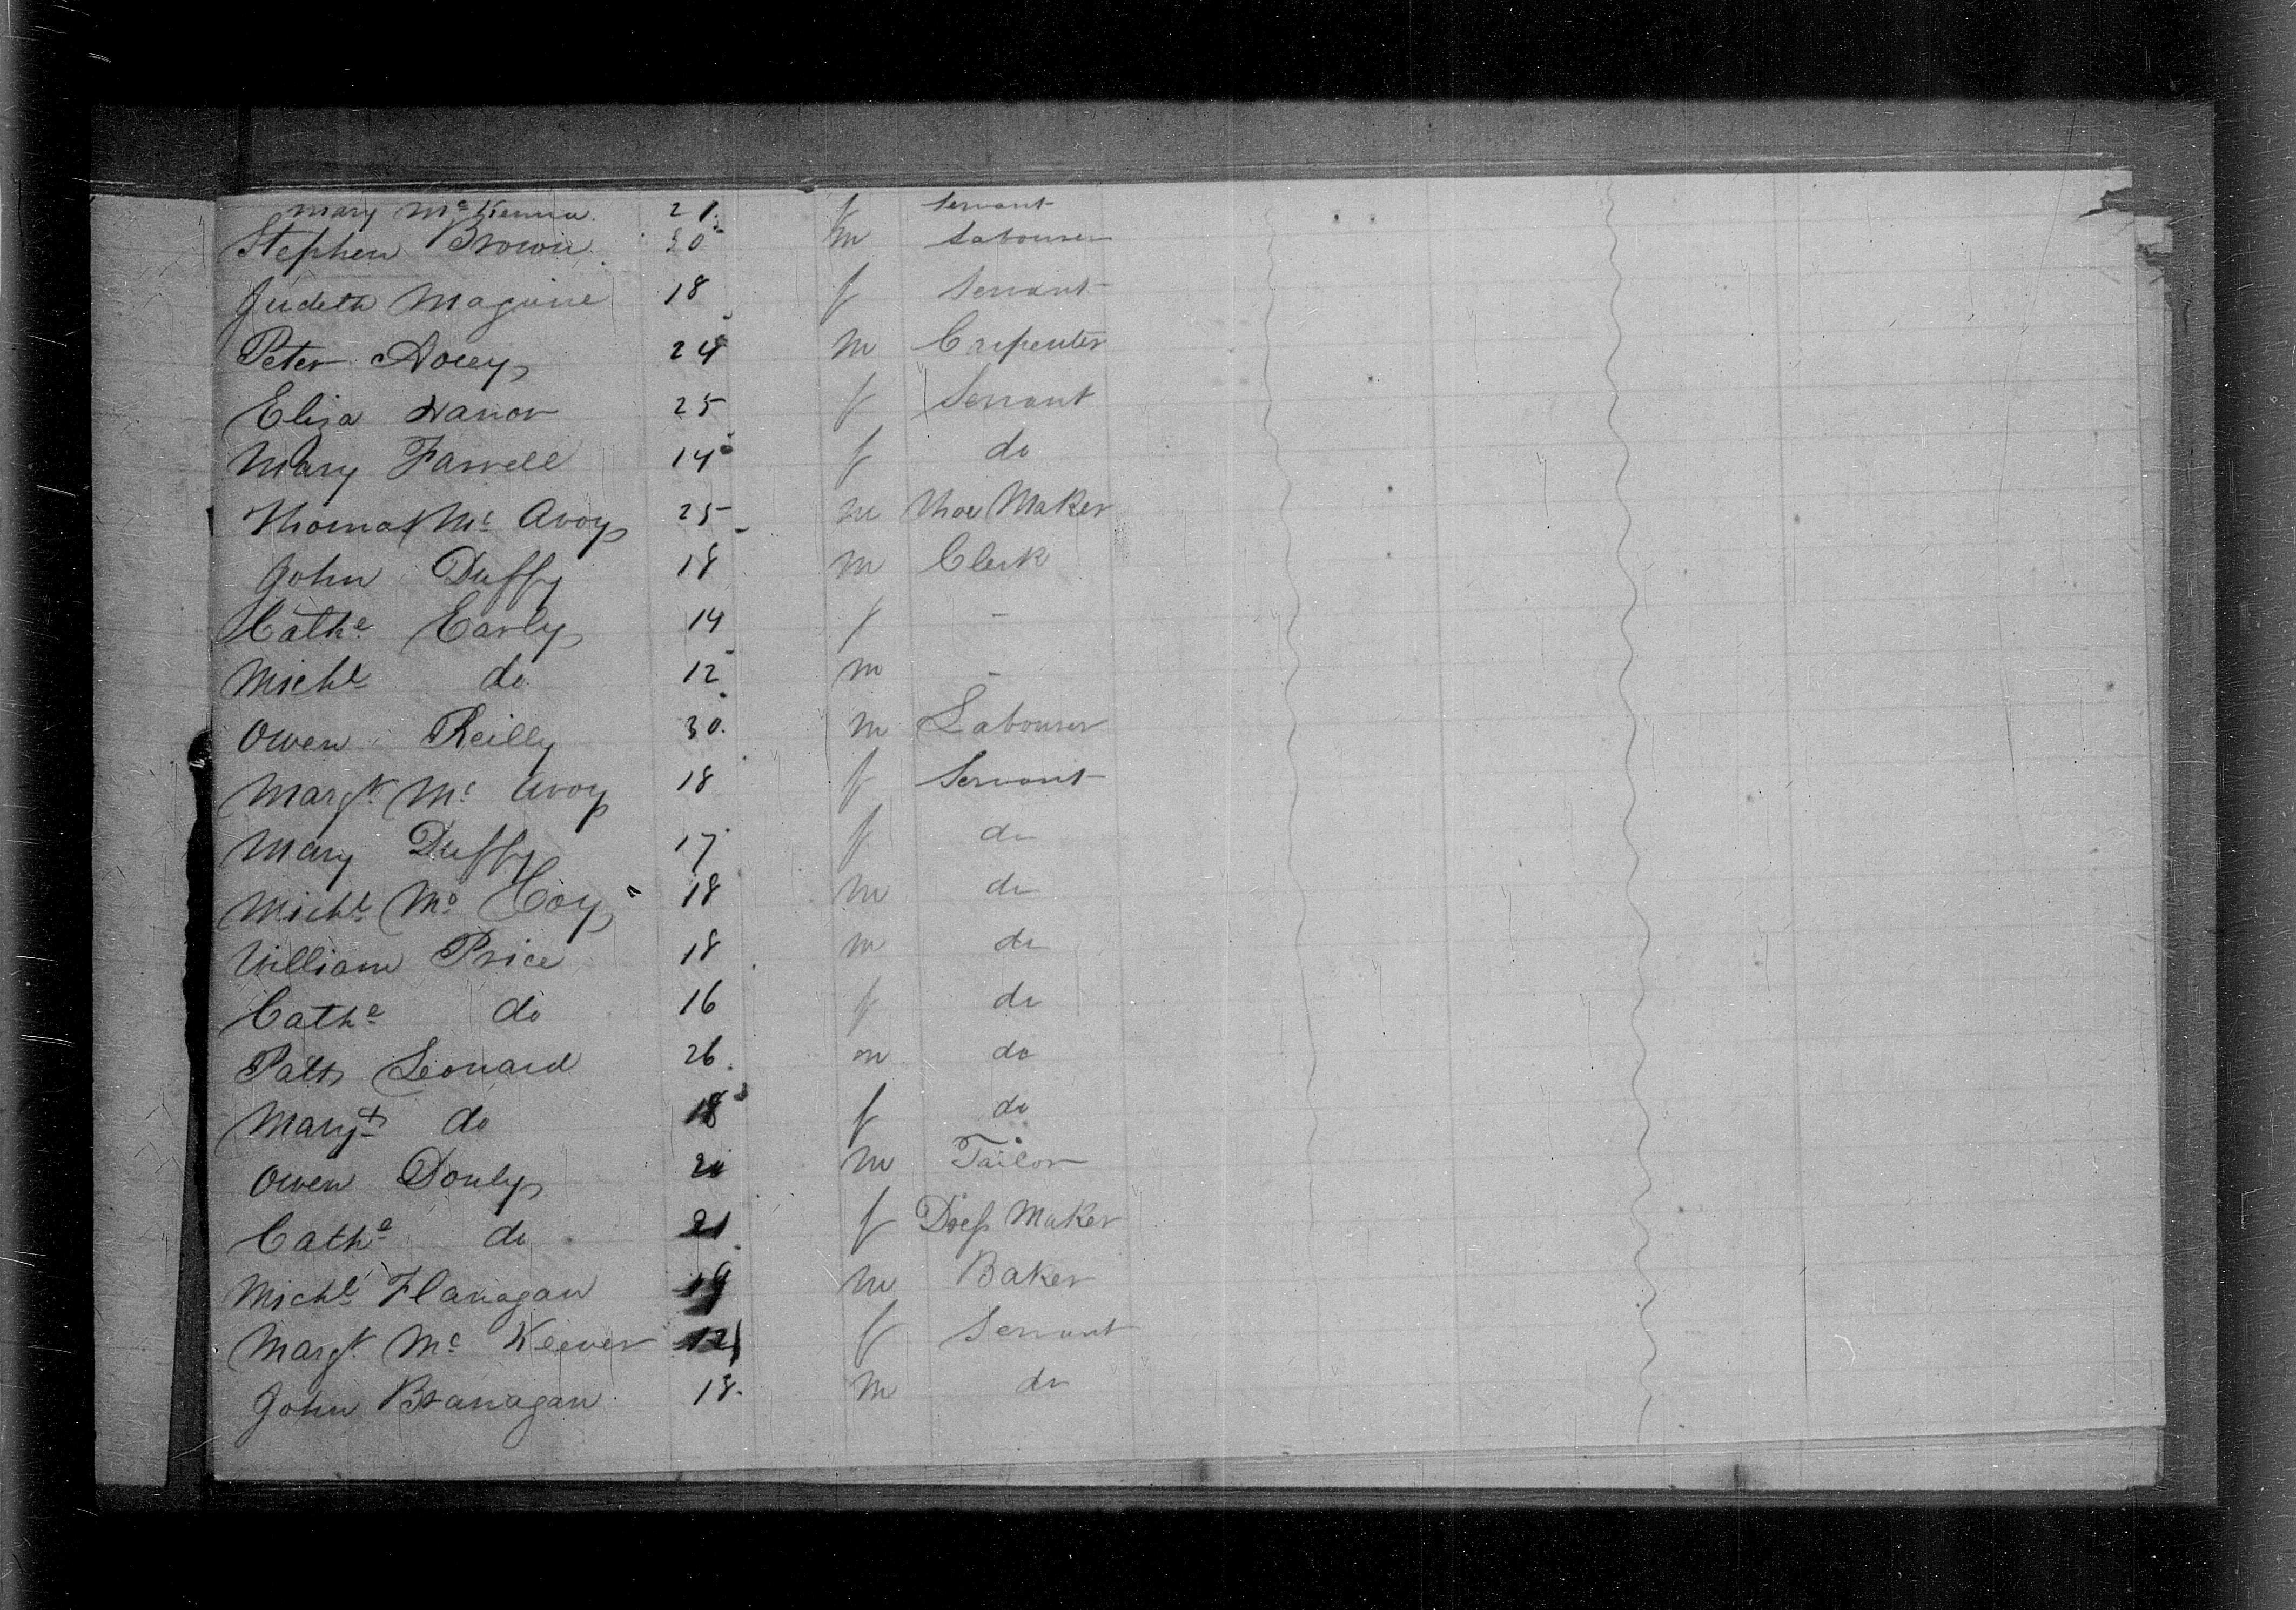 Mary McKenna 21 f Servant
Stephen Brown 30 m Labourer
Judeth Maguire 18 f Servant
Peter 24 m Carpenter
Eliza 25 f Servant
Mary Farrell 14 f do
Thomas Mc Avoy 25 m Shoe Maker
John Duffy 18 m Clerk
Cathe Early 14 f -
Michl do 12 m -
Owen Reilly 30 m Labourer
Margt Mc Avoy 18 f Servant
Mary Duffy 17 f do
Michl Mc Coy 18 m do
William Price 18 m do
Cathe do 16 f do
Patk Leonard 26 m do
Margt do 18 f do
Owen Donly 20 m Tailor
Cathe do 21 f Dress Maker
Michl Flanagan 19 m Baker
Margt Mc Keever f Servant
John Branagan 18 m do